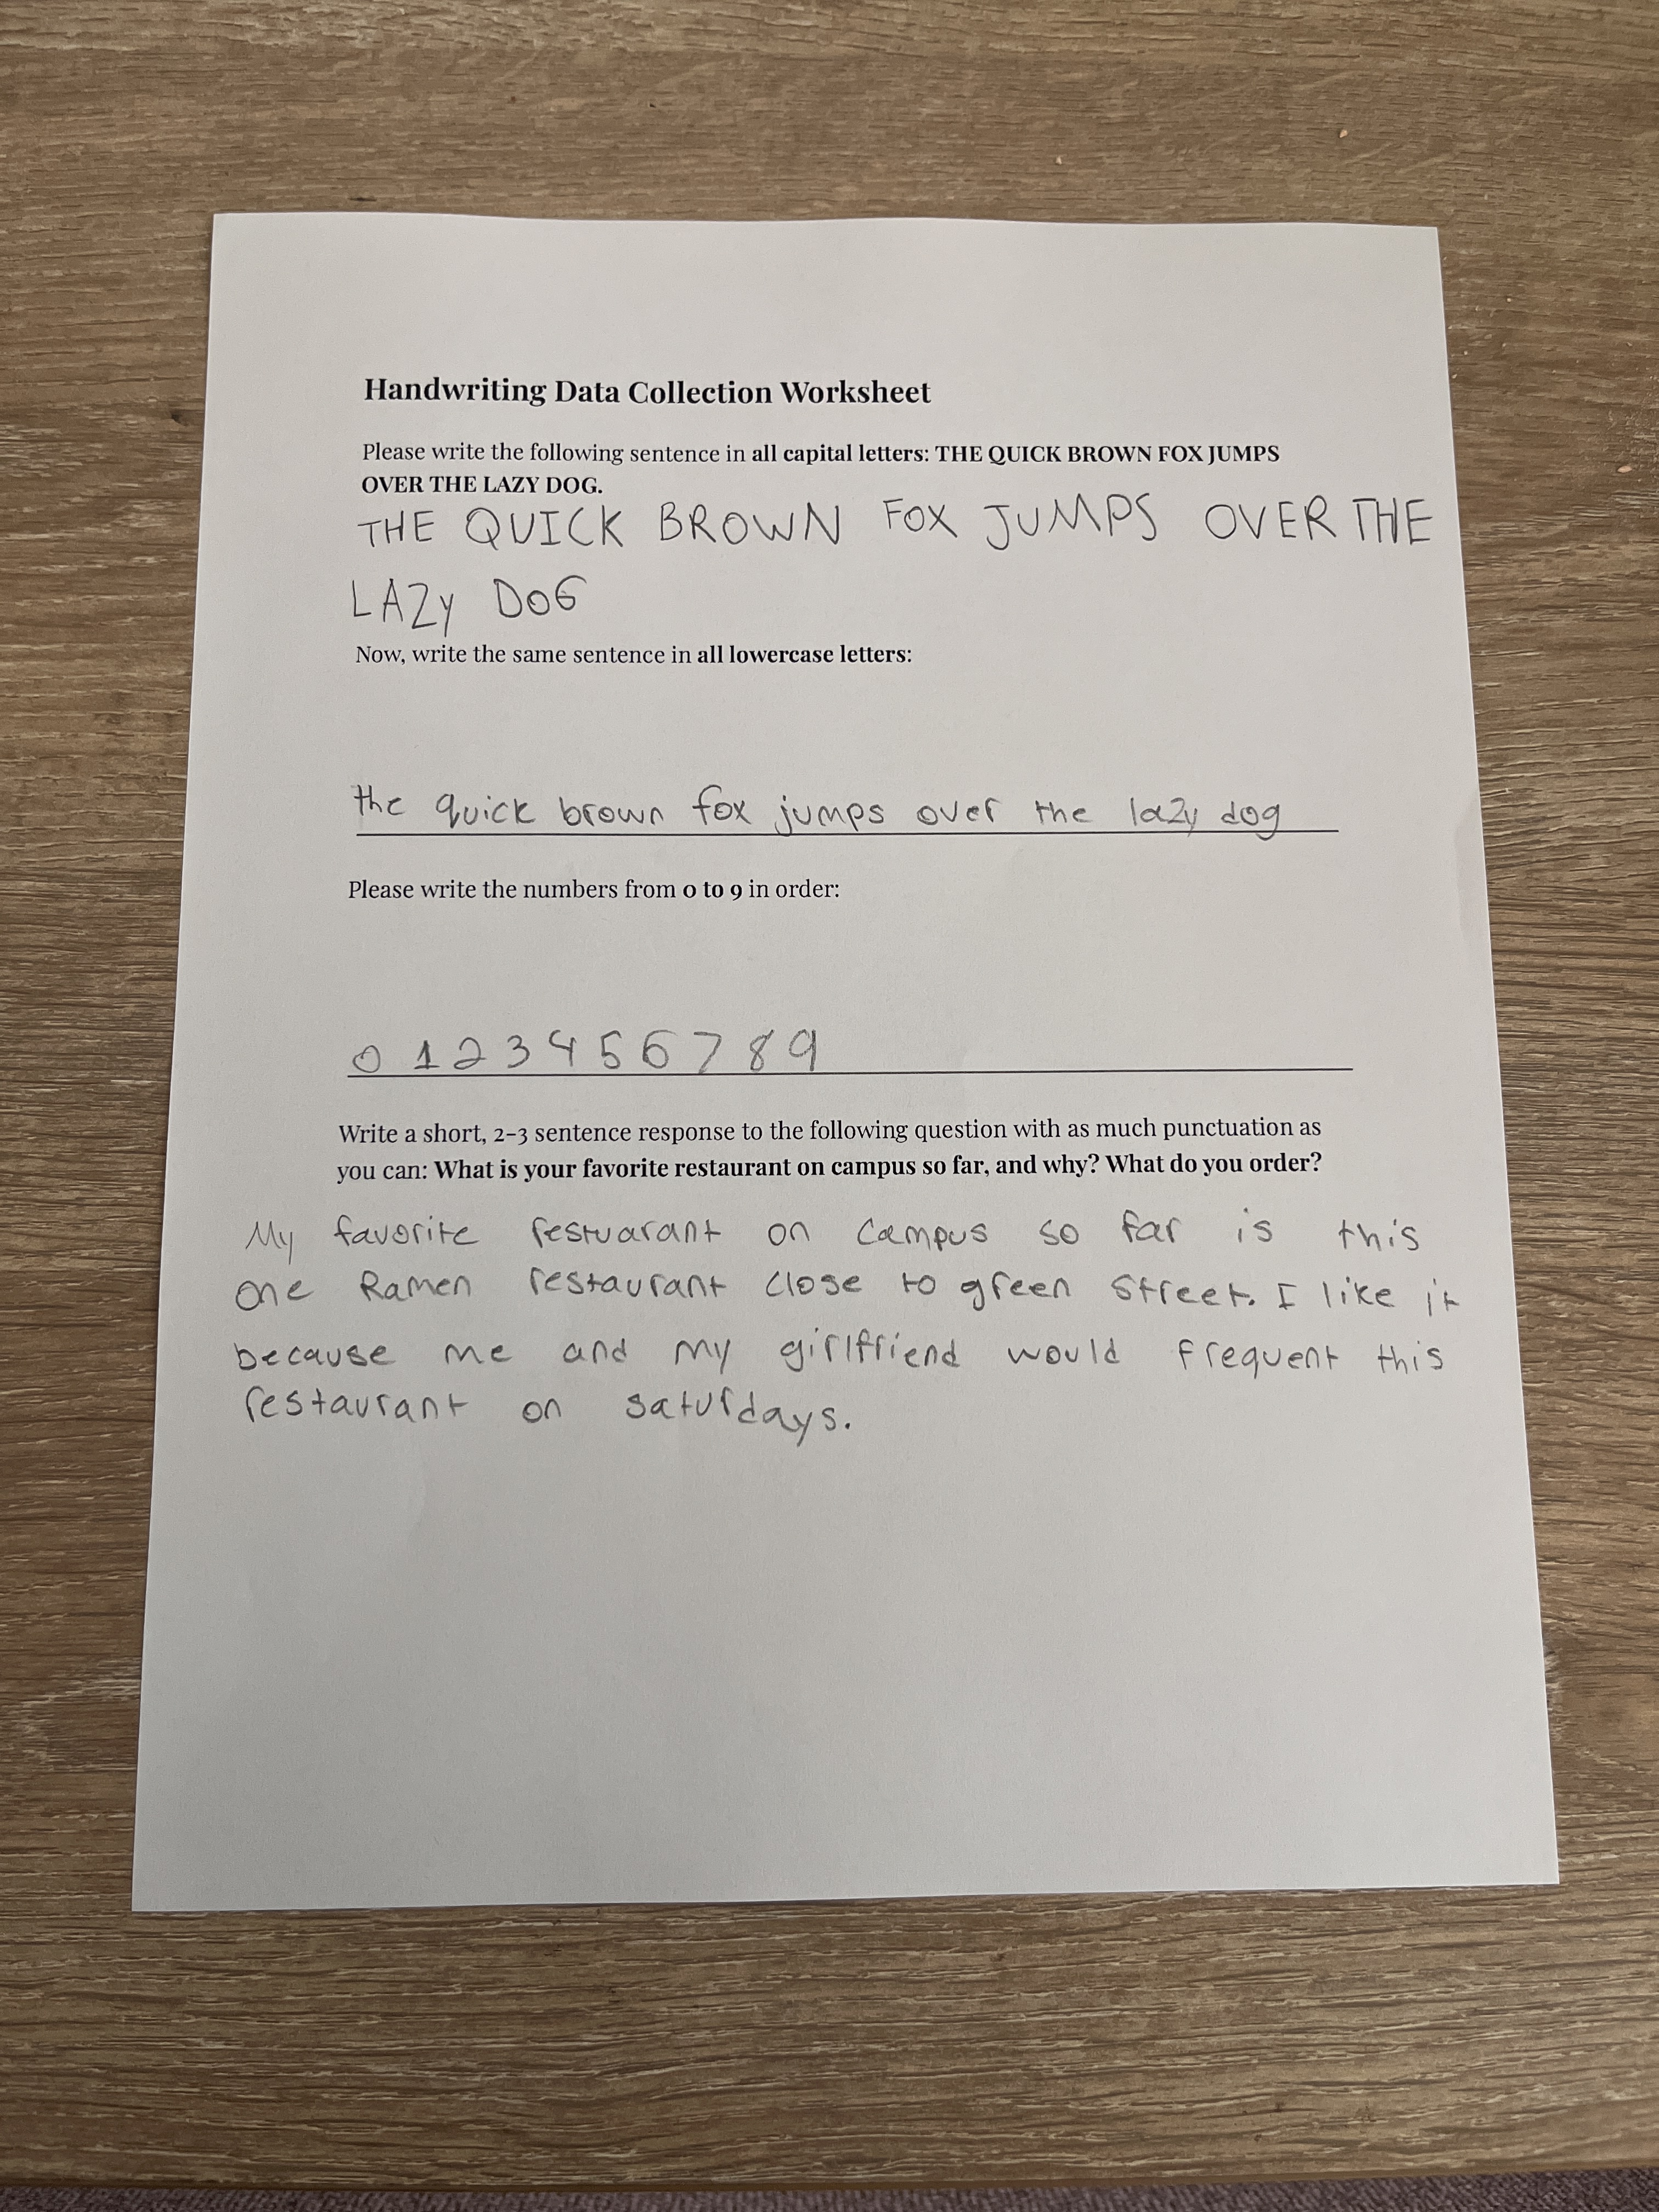 Handwriting Data Collection Worksheet
Please write the following sentence in all capital letters: THE QUICK BROWN FOX JUMPS
OVER THE LAZY DOG.
THE QUICK BROWN FOX JUMPS OVER THE
LAZy DOG
Now, write the same sentence in all lowercase letters:
the quick brown fox jumps over the lazy dog
Please write the numbers from 0 to 9 in order:
0 1 2 3 4 5 6 7 8 9
Write a short, 2-3 sentence response to the following question with as much punctuation as
you can: What is your favorite restaurant on campus so far, and why? What do you order?
My favorite restuarant on campus so far is this
one Ramen restaurant close to green street. I like it
because me and my girlfriend would frequent this
restaurant on saturdays.